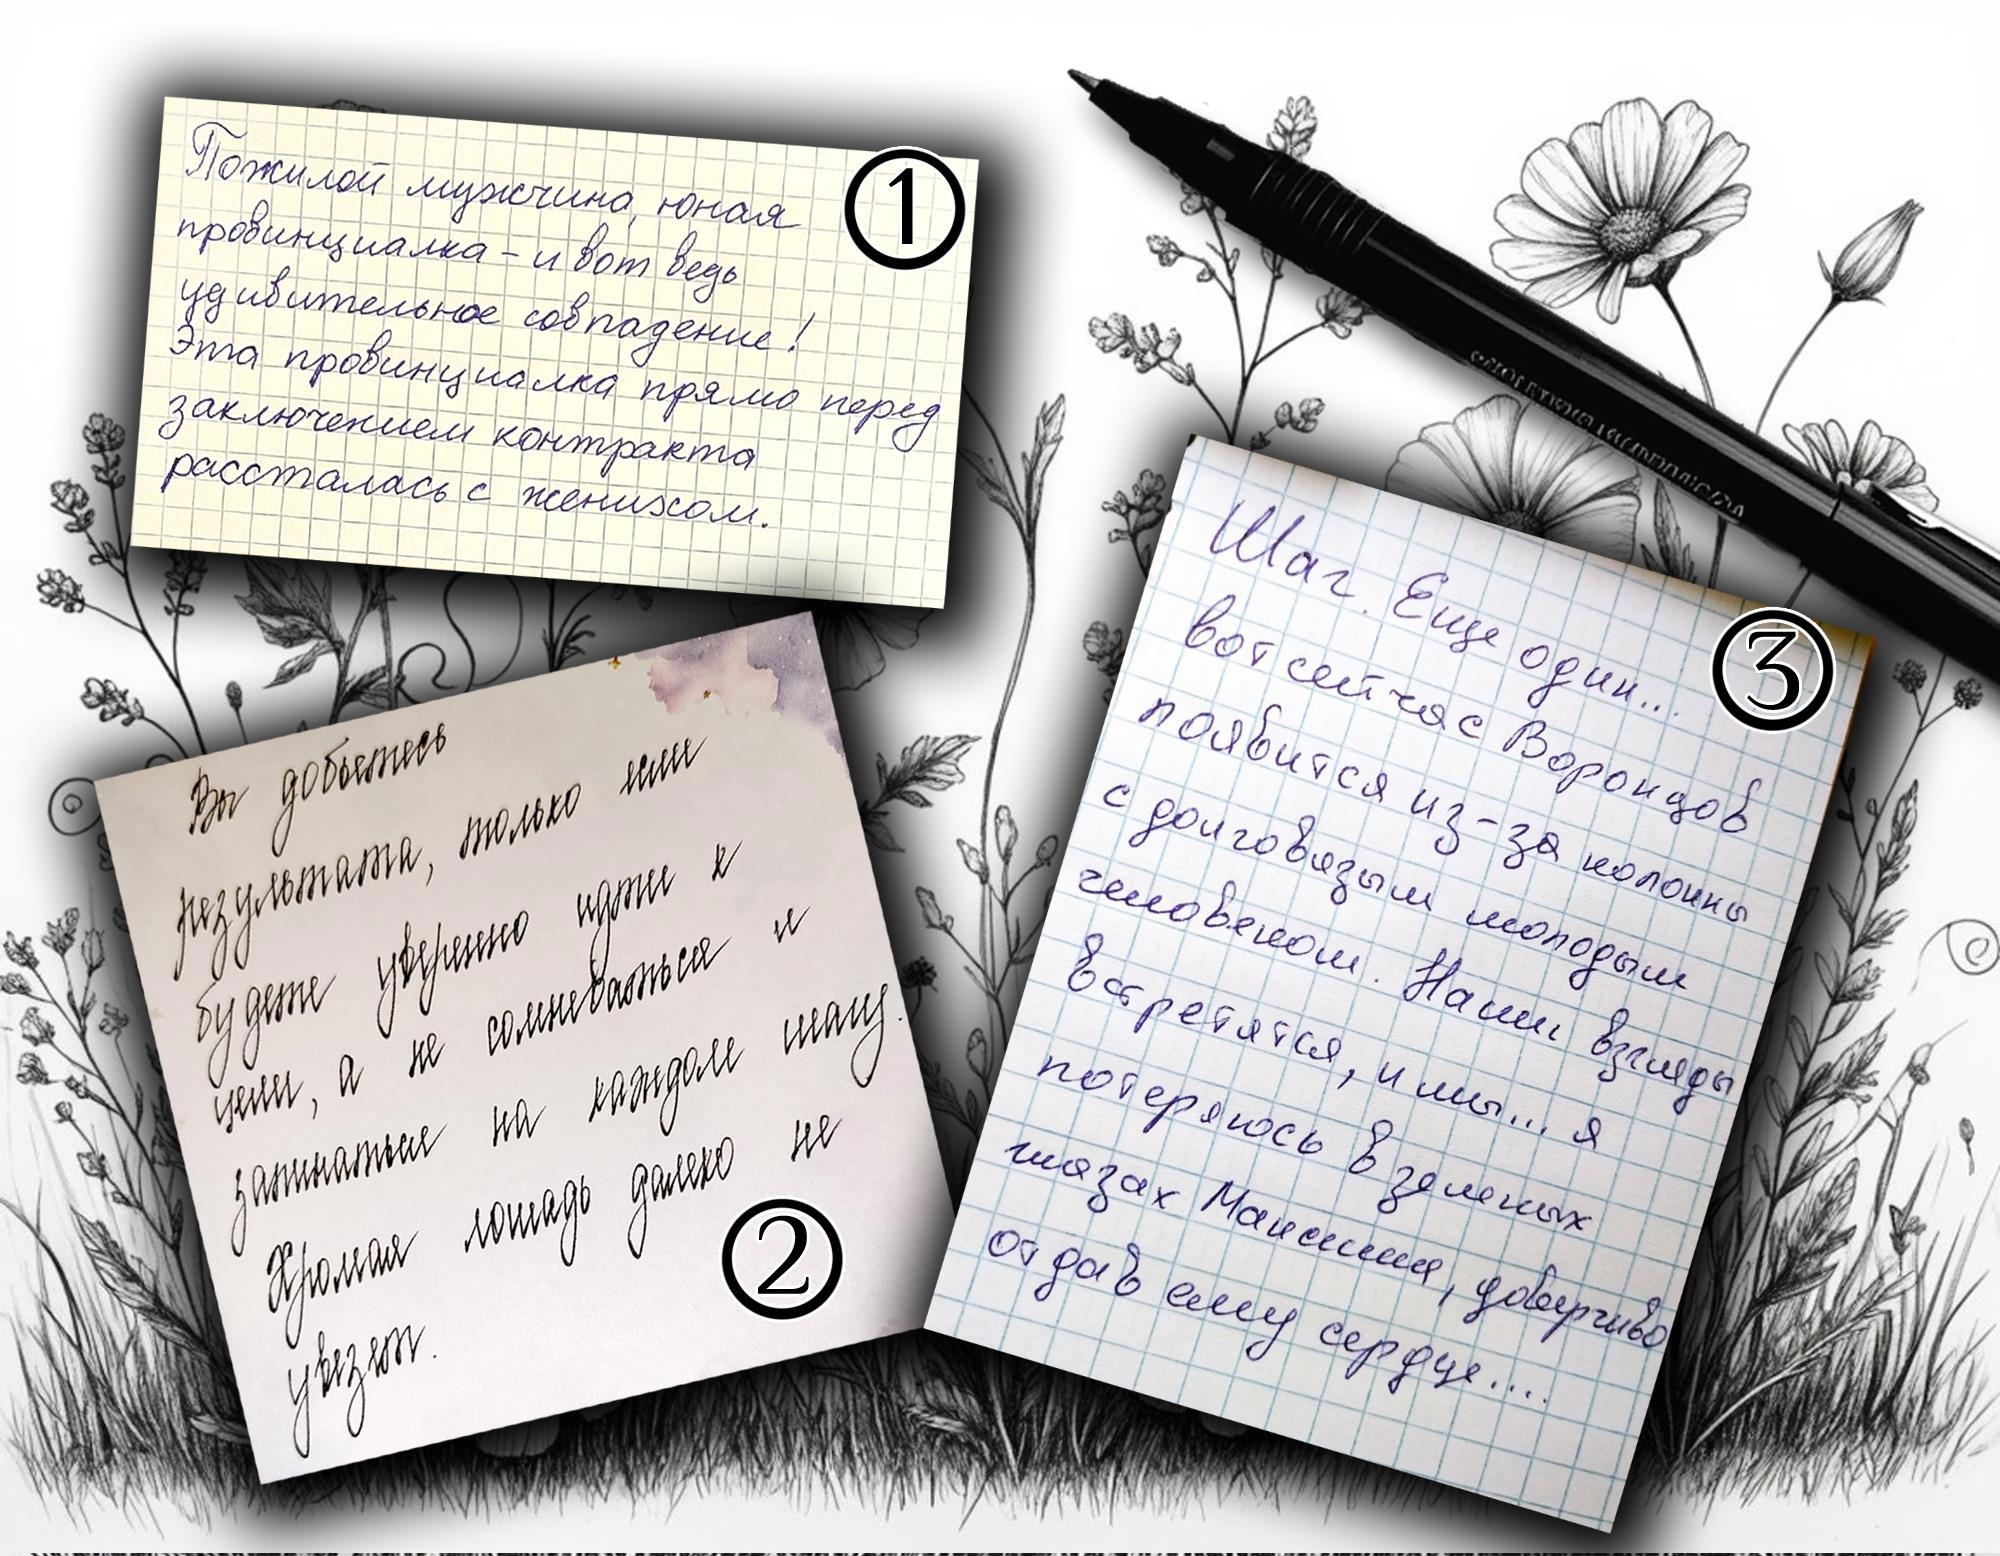 1
Пожилой мужчина, юная
провинциалка - и вот ведь
удивительное совпадение!
Эта провинциалка прямо перед
заключением контракта
рассталась с женихом.
2
Вы добьетесь
результата, только если
будете уверенно идти к
цели, а не сомневаться и
запинаться на каждом шагу.
Хромая лошадь далеко не
увезет.
3
Шаг. Еще один...
вот сейчас Воронцов
появится из-за колонны
с долговязым молодым
человеком. Наши взгляды
встретятся, и мы... я
потеряюсь в зеленых
глазах Максима, доверчиво
отдав ему сердце....